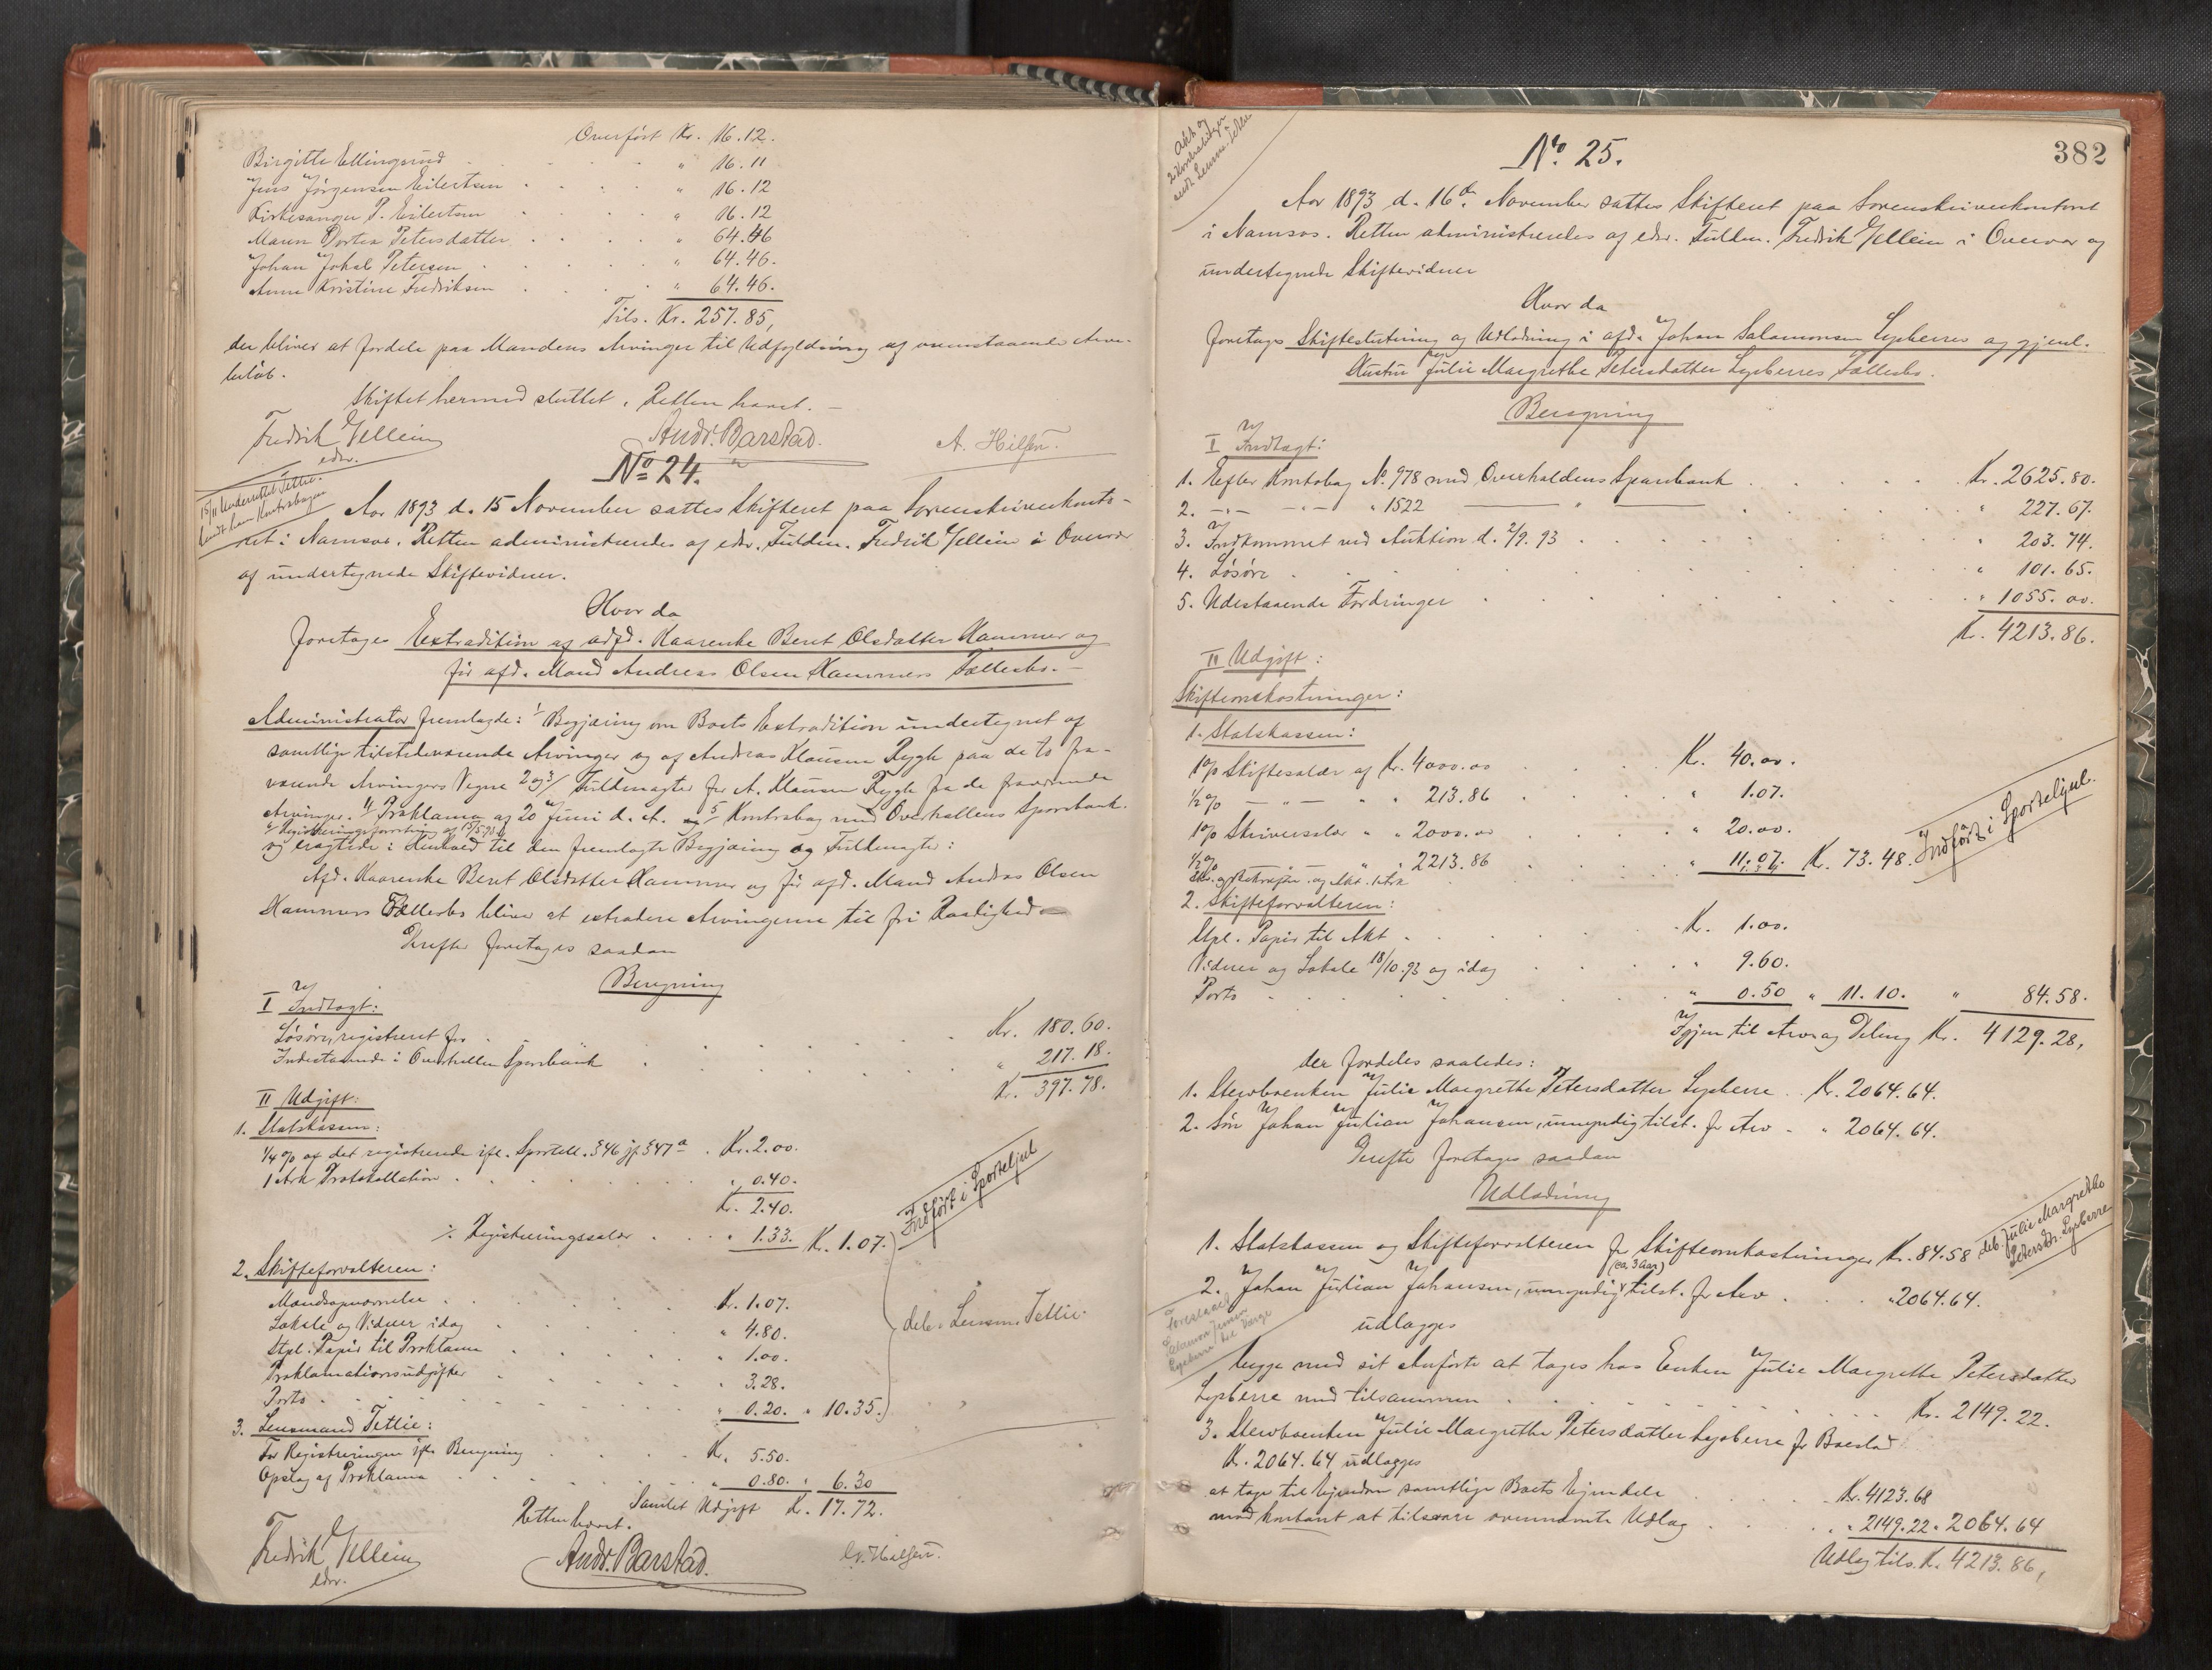 Overført Kr. 16.12.
Birgitte Ellingsund " 16.11
Jens Jørgensen Eilertsen " 16.12
Kirkesanger P. Eilertsen " 16.12
Maren Dortea Petersdatter " 64.46
Johan Jokal Petersen " 64.46.
Anne Kristine Fredriksen " 64.46.
Tils. Kr. 257.85,
der bliver at fordele paa Mandens Arvinger til Udfyldning af ovenstaaende Arve-
beløb.
Skiftet hermed sluttet. Retten hævet.
Fredrik Vellein
edsv.
Andr. Barstad.
A. Hilsen.
No 24.
15/11 Underrettet Tettlie.
sendt ham Kontrabogen
Aar 1893 d. 15 November sattes Skifteret paa Sorenskriverkonto-
ret i Namsos. Retten administreredes af edsv. Fuldm. Fredrik Vellein i Overvær
af undertegnede Skiftevidner.
Hvor da
foretages Extradition af afd. Kaarenke Beret Olsdatter Hammer og
før afd. Mand Andreas Olsen Hammers Fællesbo.
Administrator fremlagde: 1/ Begjæring om Boets Extradition undertegnet af
samtlige tilstedeværende Arvinger og af Andreas Klausen Rygh paa de to fra-
værende Arvingers Vegne 2 og 3/ Fuldmagter for A. Klausen Rygh fra de fraværende
Arvinger. 4/ Proklama af 20 Juni d. A. og 5/ Kontrabog med Overhallens Sparebank.
6/ Registreringsforretning af 15/5 93
og eragtede: I Henhold til den fremlagte Begjæring og Fuldmagter:
Afd. Kaarenke Beret Olsdatter Hammer og før afd. Mand Andreas Olsen
Hammers Fællesbo bliver at extradere Arvingerne til fri Raadighed
Derefter foretages saadan
Beregning
I Indtægt:
Løsøre, registreret for Kr. 180.60.
Indestaaende i Overhallens Sparebank " 217.18.
Kr. 397.78.
II Udgift:
1. Statskassen:
1/4 % af det registrerede ifl. Sportell. § 46 jf. § 47 a Kr. 2.00.
1 Ark Protokollation " 0.40.
Kr. 2.40.
÷ Registreringssalær " 1.33. Kr. 1.07.
Indført i Sporteljnl
2. Skifteforvalteren:
Mandsopnævnelse Kr. 1.07.
Lokale og Vidner idag " 4.80.
Stpl. Papir til Proklama " 1.00.
Proklamationsudgifter " 3.28.
Porto " 0.20. " 10.35.
deb. Lensm. Tettlie.
3. Lensmand Tettlie:
For Registreringen ifl. Beregning Kr. 5.50.
Opslag af Proklama " 0.80. " 6.30
Samlet Udgift Kr. 17.72.
Retten hævet.
Fredrik Vellein
edsv.
Andr. Barstad.
A. Hilsen.
382
Akt og
2 Kontrabøger
sendt Lensm.
No. 25.
Aar 1893 d. 16de November sattes Skifteret paa Sorenskriverkontoret
i Namsos. Retten administreredes af edsv. Fuldm. Fredrik Vellein i Overvær og
undertegnede Skiftevidner
Hvor da
foretages Skifteslutning og Udlodning i afd. Johan Salamonsen Lysberres og gjenl.
Hustru Julie Margrethe Petersdatter Lysberres Fællesbo.
Beregning
I Indtægt:
1. Efter Kontrabog No. 978 med Overhaldens Sparebank Kr. 2625.80.
2. -"- -"- " 1522 " " 227.67.
3. Indkommet ved Auktion d. 2/9. 93 " 203.74.
4. Løsøre " 101.65.
5. Udestaaende Fordringer " 1055.00.
Kr. 4213.86.
II Udgift:
Skifteomkostninger:
1. Statskassen:
1 % Skiftesalær af Kr. 4000.00 Kr. 40.00.
1/2 % -"- " " 213.86 " 1.07.
1 % Skriversalær " " 2000.00 " 20.00.
1/2 % -"- " " 2213.86 " 11.07. Kr. 73.48.
Indført i Sporteljnl.
2. Skifteforvalteren:
Stpl. Papir til Akt Kr. 1.00.
Vidner og Lokale 18/10.93 og idag " 9.60.
Porto " 0.50 " 11.10. " 84.58.
Igjen til Arv og Deling Kr. 4129.28,
der fordeles saaledes:
1. Stervboenken Julie Margrethe Petersdatter Lysberre Kr. 2064.64.
2. Søn Johan Julian Johansen, umyndig tilst. for Arv " 2064.64.
Derefter foretages saadan
Udlodning
1. Statskassen og Skifteforvalteren for Skifteomkostninger Kr. 84.58
deb. Julie Margrethe
Petersdr. Lysberre
(ca. 3 Aar)
2. Johan Julian Johansen, umyndig tilst. for Arv " 2064.64.
Foreslaaet
Salamon Jensen
Lysberre til Værge
udlægges
begge med sit Anførte at tages hos Enken Julie Margrethe Petersdatter
Lysberre med tilsammen Kr. 2149.22.
3. Stervboenken Julie Margrethe Petersdatter Lysberre for Boeslod
Kr. 2064.64 udlægges
at tage til Eiendom samtlige Boets Eiendele Kr. 4123.68
mod kontant at tilsvare ovennævnte Udlæg " 2149.22. 2064.64
Udlæg tils. Kr. 4213.86,